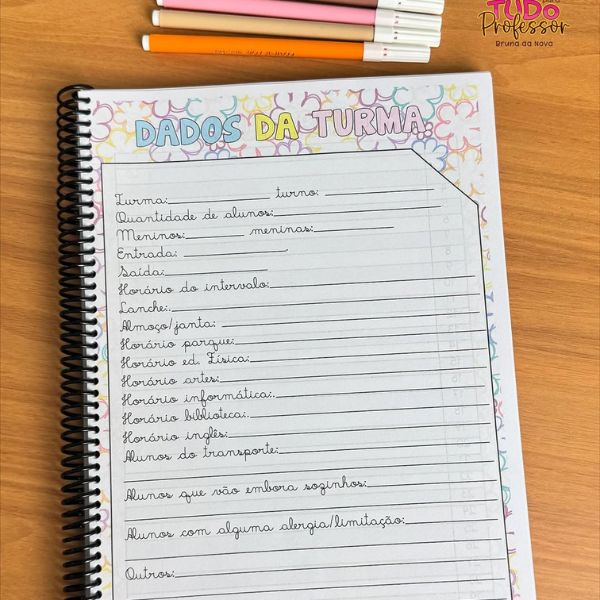 TUDO
Professor
Bruna da Nova
DADOS DA TURMA:
Turma: turno:
Quantidade de alunos:
Meninos: meninas:
Entrada:
Saída:
Horário do intervalo:
Lanche:
Almoço/janta:
Horário parque:
Horário ed. Física:
Horário artes:
Horário informática:
Horário biblioteca:
Horário inglês:
Alunos do transporte:
Alunos que vão embora sozinhos:
Alunos com alguma alergia/limitação:
Outros: